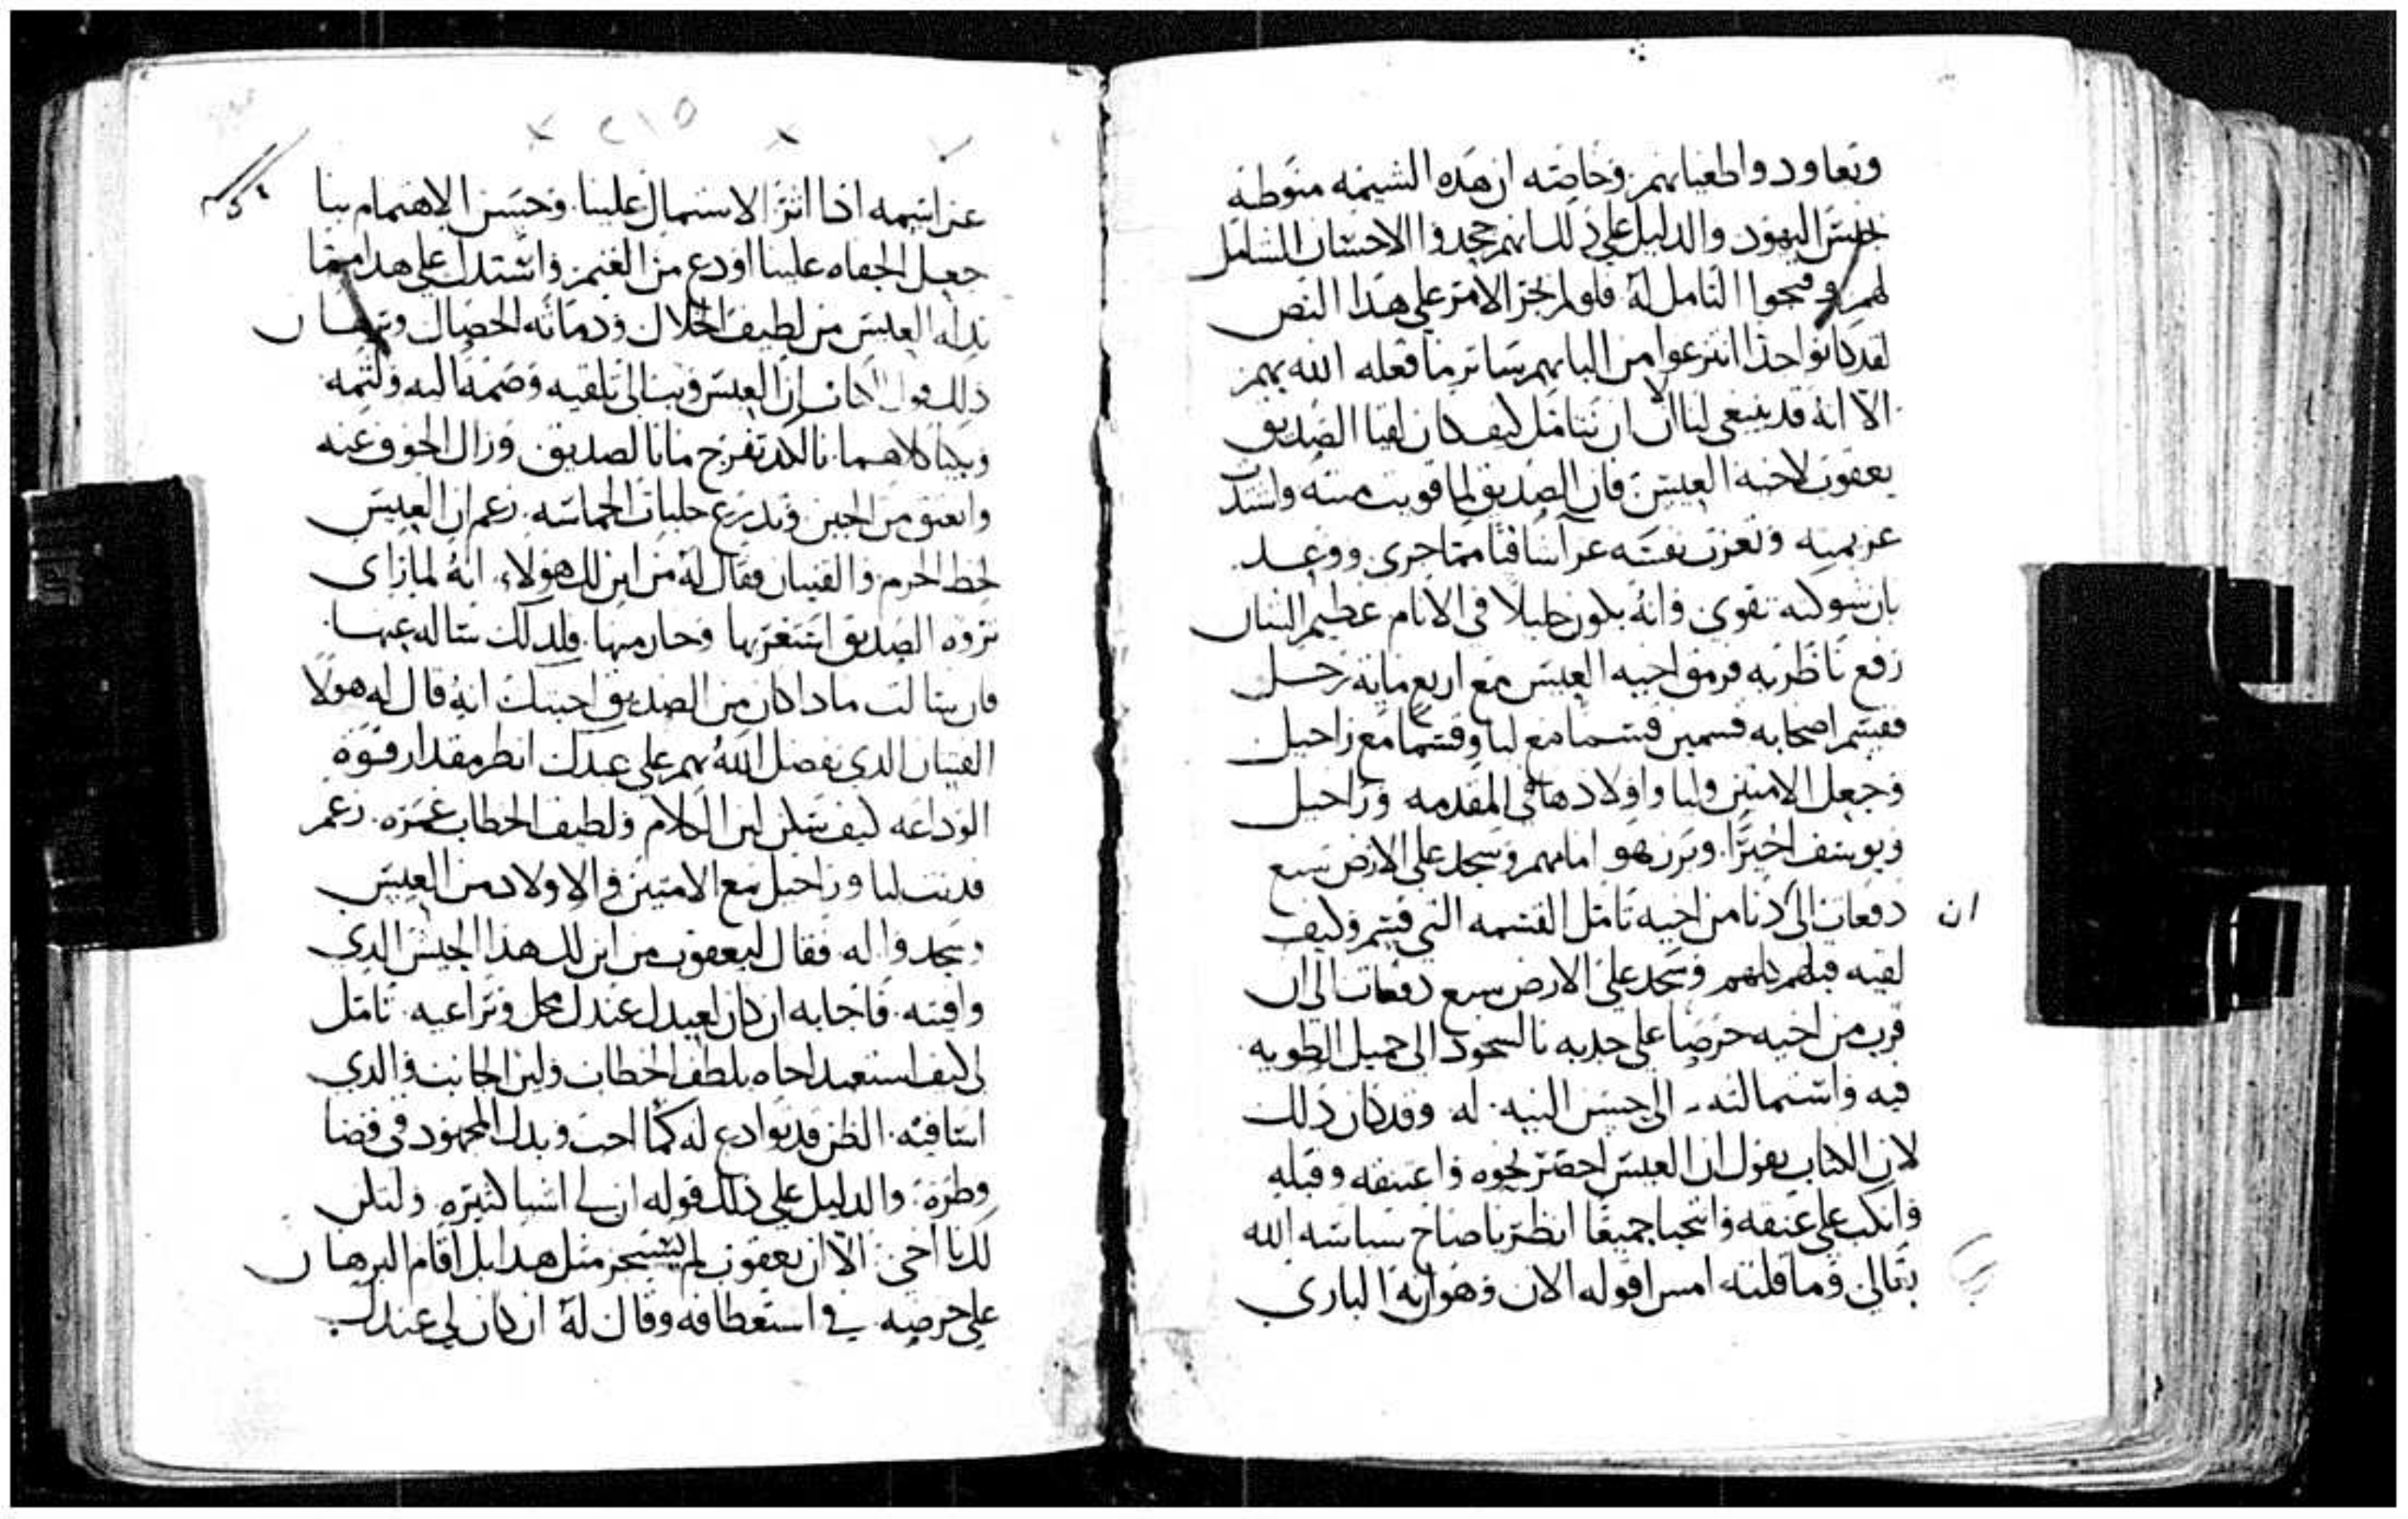 وتعاودوا طغيانهم وخاصه ان هذه الشيمه منوطه
بجنس اليهود والدليل على ذلك انهم جحدوا الاحسان الشامل
لهم التامل له فلو لم يجز الامر على هذا النص
لقد كانوا حذا انتزعوا من البابهم سائر ما فعله الله بهم
الا انه قد ينبغي لنا الان ان نتامل كيف كان لقيا الصديق
يعقوب لاخيه العيس فان الصديق لما قويت منته واشتدت
عزيمته وتعزت نفسه عن آنافا مما جرى ووعد
بان شوكته تقوى وانه يكون جليلا في الانام عظيم الشان
رفع ناظريه فرمق اخيه العيس مع اربع مايه رجل
فقسم اصحابه قسمين قسما مع ليا وقسما مع راحيل
وجعل الامتين وليا واولادها في المقدمه وراحيل
ويوسف اخيرا. وبرز هو امامهم وسجد على الارض سبع
دفعات الى ان دنا من اخيه تامل القسمه التي قسم وكيف
لقيه قبلهم كلهم وسجد على الارض سبع دفعات الى ان
قرب من اخيه حرصا على جذبه بالسجود الى جميل الطويه
فيه واستمالته الى حسن النيه له وقد كان ذلك
لان الكتاب يقول ان العيس احضر نحوه واعتنقه وقبله
وانكب على عنقه وانتحبا جميعا انظر يا صاح سياسه الله
تعالى وما قلته امس اقوله الان وهو انه الباري
٢١٥
عز اسمه اذا اثر الاشتمال علينا وحسن الاهتمام بنا
جعل الجفاه علينا اودع من الغنم واستدل على هذا مما
بذله العيس من لطيف الخلال ودماثه الخصال وبرهان
ذلك قول الكتاب ان العيس وثب الى تلقيه وضمه اليه ولثمه
وبكيا كلاهما بالكد تفرج ما نا الصديق وزال الخوف عنه
وانعتق من الجبن وتدرع جلباب الحماسه زعم ان العيس
لحظ الحرم والفتيان فقال له من اين لك هولاء انه لما راى
ثروه الصديق استغزرها وحار منها فلذلك ساله عنها
فان سالت ماذا كان من الصديق اجبتك انه قال له هولا
الفتيان الذي تفضل الله بهم على عبدك انظر مقدار قوه
الوداعه كيف سكن لين الكلام ولطيف الخطاب غمره. زعم
فدنت ليا وراحيل مع الامتين والاولاد من العيس
وسجدوا له فقال ليعقوب من اين لك هذا الجيش الذي
وافيته فاجابه ان كان لعبدك عندك محل وتراعيه تامل
لي كيف استعبد اخاه بلطف الخطاب ولين الجانب والذي
اسا فيه الظن قد توادع له كما احب وبذل المجهود في قضا
وطره والدليل على ذلك قوله ان لي اشيا كثيره ولتكن
لك يا اخي الا ان يعقوب لم يستجز مثل هذا بل اقام البرهان
على حرصه في استعطافه وقال له ان كان لي عندك